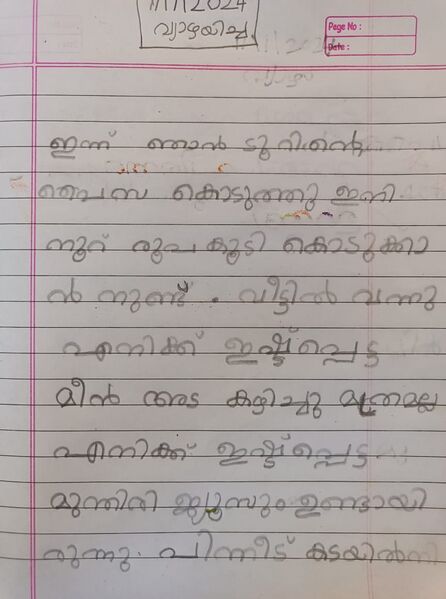 11/1/2024
വ്യാഴായിച്ച
Page No :
Date :
ഇന്ന് ഞാൻ ടൂറിൻ്റെ
പൈസ കൊടുത്തു ഇനി
നൂറ് രൂപ കൂടി കൊടുക്കാ
ൻ നുണ്ട് . വീട്ടിൽ വന്നു
എനിക്ക് ഇഷ്ട്ടപ്പെട്ട
മീൻ അട കഴിച്ചു മത്രമല്ല
എനിക്ക് ഇഷ്ട്ടപ്പെട്ട
മുന്തിരി ജ്യൂസും ഉണ്ടായി
രുന്നു. പിന്നീട് കടയിൽ നി